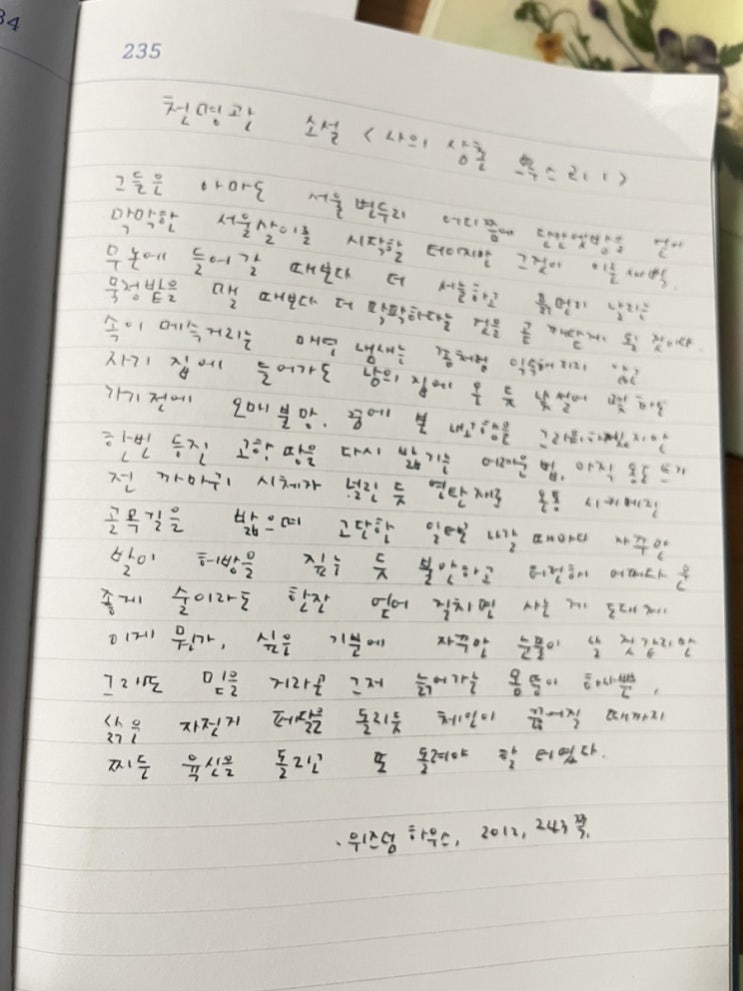 34
235
천명관 소설 <나의 삼촌 브루스 리 1>
그들은 아마도 서울 변두리 어디쯤에 단칸셋방을 얻어
막막한 서울살이를 시작할 터이지만 그것이 이른 새벽,
무논에 들어갈 때보다 더 서늘하고 흙먼지 날리는
묵정밭을 맬 때보다 더 팍팍하다는 것을 곧 깨닫게 될 것이다.
속이 메슥거리는 매연 냄새는 좀처럼 익숙해지지 않고
자기 집에 들어가도 남의 집에 온 듯 낯설어
가기 전에 오매불망, 꿈에 본 내 고향을 그리워하겠지만
한번 등진 고향 땅을 다시 밟기는 어려운 법, 아직 동도 트기
전 까마귀 시체가 널린 듯 연탄재로 온통 시커메진
골목길을 밟으며 고단한 일터로 나갈 때마다 자꾸만
발이 허방을 짚는 듯 불안하고 허전해 어쩌다 운
좋게 술이라도 한잔 얻어 걸치면 사는 게 도대체
이게 뭔가, 싶은 기분에 자꾸만 눈물이 날 것 같지만
그래도 믿을 거라곤 그저 늙어가는 몸뚱이 하나뿐,
삶은 자전거 페달을 돌리듯 체인이 끊어질 때까지
찌든 육신을 돌리고 또 돌려야 할 터였다.
. 위즈덤 하우스, 2012, 243쪽.